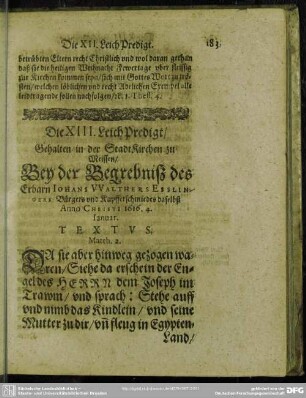 Die XII. Leich Predigt.
183.
betrübten Eltern recht Christlich und wol daran gethan
daß sie die heiligen Weihnacht Feyertage uber fleissig
zur Kirchen kommen seyn/ sich mit Gottes Wort zu trö-
sten/ welchen löblichen und recht Adelichen Exempel alle
leidtragende sollen nachfolgen/ 1. Thess. 4.
Die XIII. Leich Predigt/
Gehalten in der StadtKirchen zu
Meissen/
Bey der Begrebniß des
Erbarn IOHANS VVALTHERS ESSLIN-
GERS Bürgers und Kupfferschmiedes daselbst
Anno CHRISTI 1616. 4.
Januar.
TEXTVS.
Matth. 2.
DA sie aber hinweg gezogen wa-
ren/ Siehe da erschein der En-
gel des HERRN dem Joseph im
Trawm/ vnd sprach: Stehe auff
vnd nimb das Kindlein/ vnd seine
Mutter zu dir/ vñ fleug in Egypten-
Land/